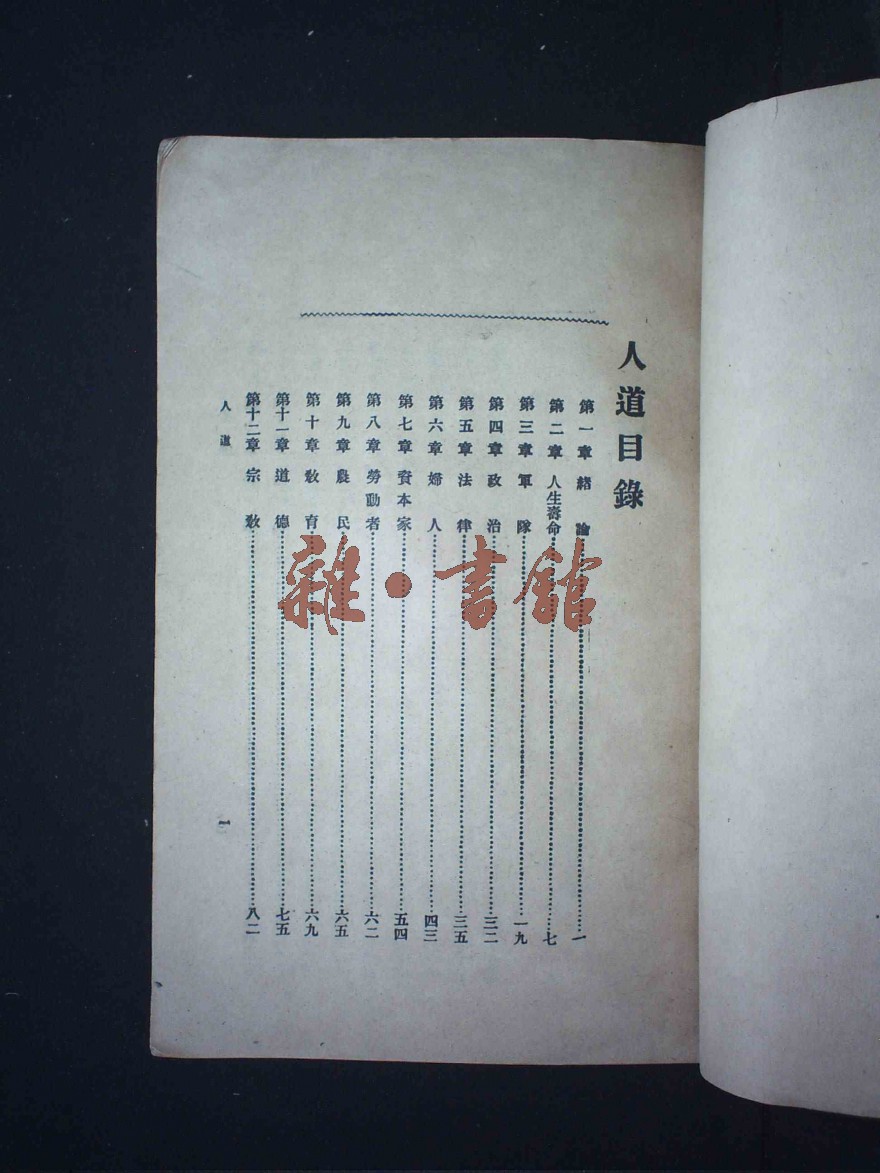 人道目錄
第一章 緒論……一
第二章 人生壽命……七
第三章 軍隊……一九
第四章 政治……三二
第五章 法律……三五
第六章 婦人……四三
第七章 資本家……五四
第八章 勞動者……六二
第九章 農民……六五
第十章 教育……六九
第十一章 道德……七五
第十二章 宗教……八二
人道
一
雜·書館